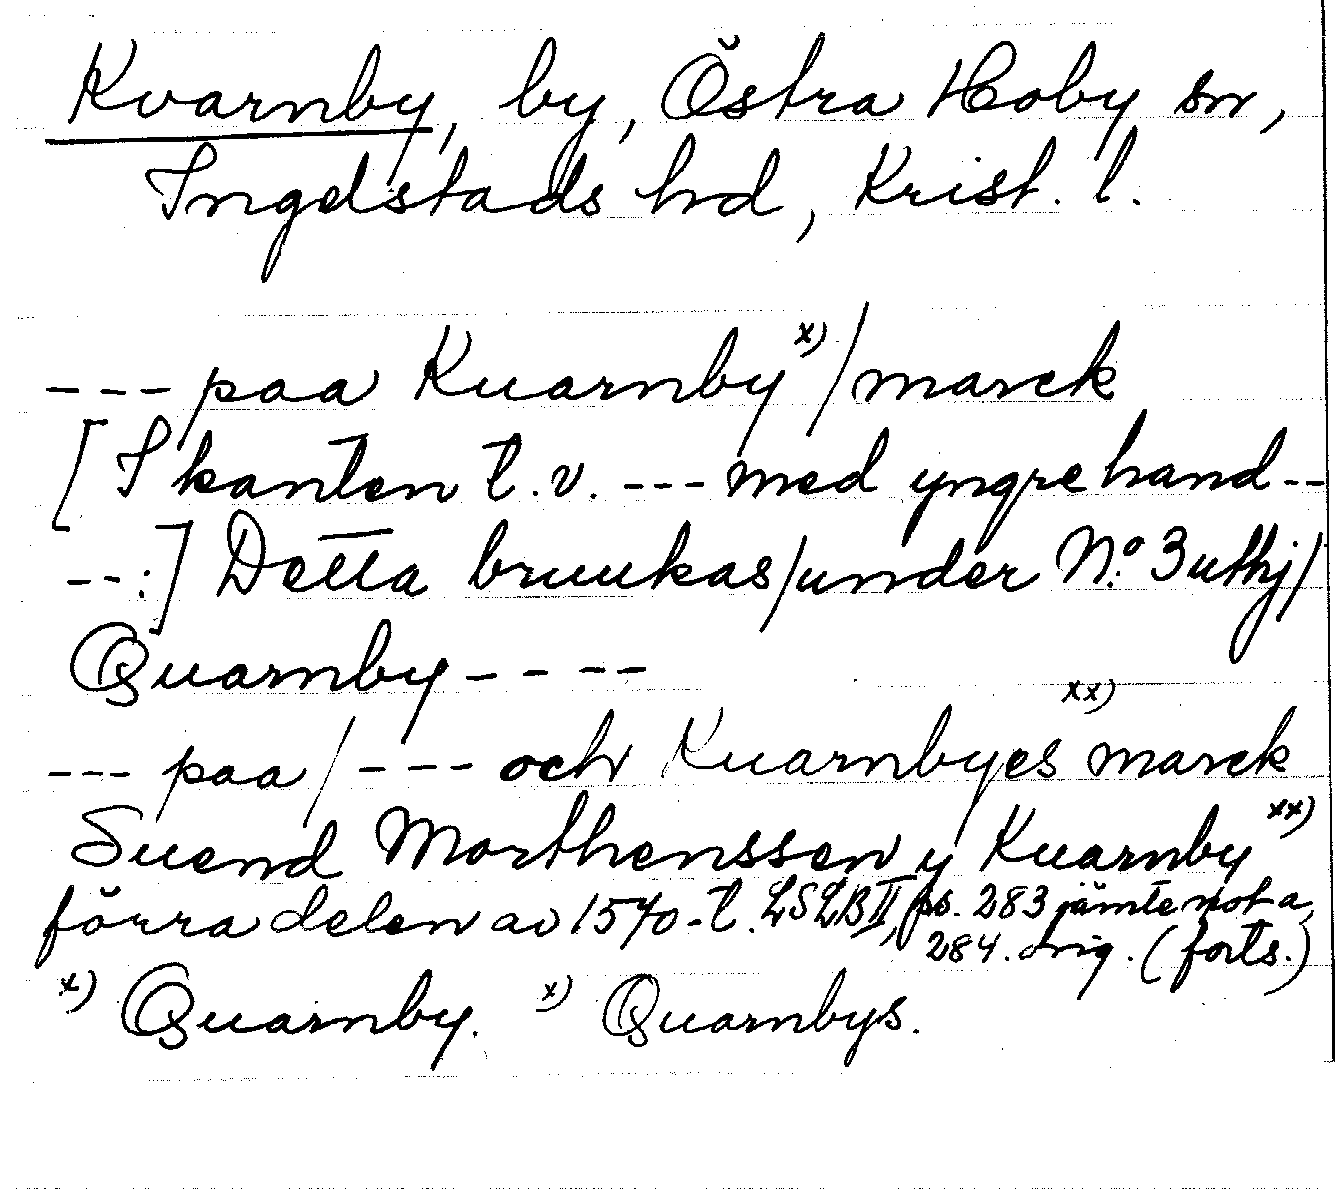 Kvarnby, by, Östra Hoby sn,
Ingelstads hd, Krist. l.
--- paa Kuarnby x) / marck
[I kanten t.v. --- med yngre hand --
--:] Detta bruukas / under N:o 3 uthj /
Quarnby ----
--- paa / --- och Kuarnbyes xx) marck
Suend Morthenssen y Kuarnby xx)
förra delen av 1570-t. LSLB II, ps. 283 jämte not a,
284. orig. (forts.)
x) Quarnby. x) Quarnbys.